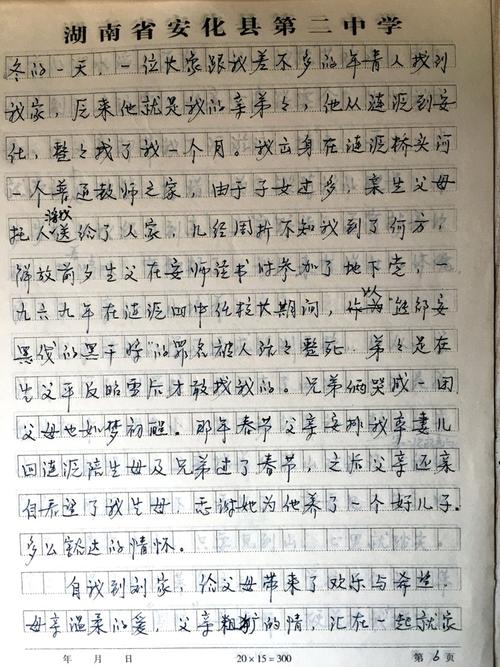 湖南省安化县第二中学
冬的一天，一位长家跟我差不多的年青人找到
我家，原来他就是我的亲弟弟，他从涟源到安
化，整整找了我一个月。我出身在涟源桥头河
一个普通教师之家，由于子女过多，亲生父母
托人将我送给了人家，几经周折不知我到了何方，
解放前夕生父在安师读书时参加了地下党，一
九六九年在涟源四中任校长期间，以
黑伐的黑干将"的罪名被人活活整死，弟弟是在
生父平反昭雪后才敢找我的。兄弟俩哭成一团
父母也如梦初醒。那年春节父亲安排我率妻儿
回涟源陪生母及兄弟过了春节，之后父亲还亲
自看望了我生母，感谢她为他养了一个好儿子。
多么豁达的情怀。
自我到刘家，给父母带来了欢乐与希望
母亲温柔的爱，父亲粗犷的情，汇在一起就家
年 月 日 20×15=300 第 6 页